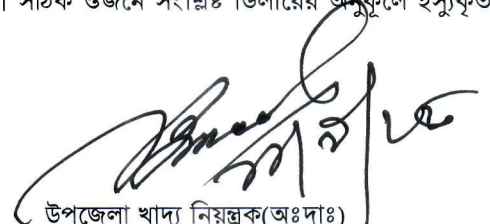 সঠিক ওজনে সংশ্লিষ্ট ডিলারের অনুকূলে ইস্যুকৃত
উপজেলা খাদ্য নিয়ন্ত্রক(অঃদাঃ)